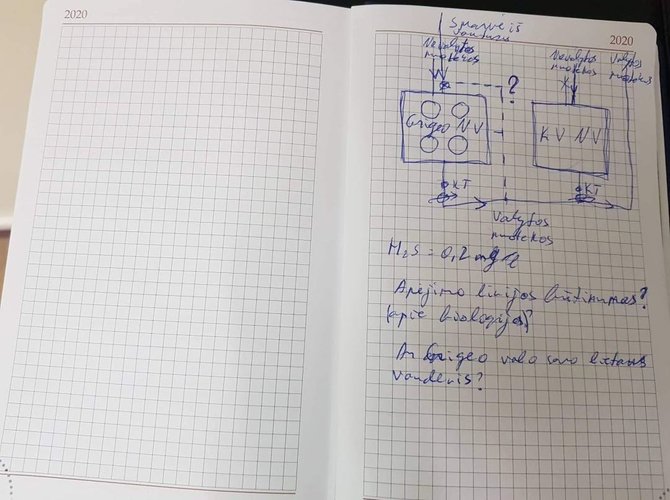 2020
2020
Nevalytos
nuotekos
Nevalytos
nuotekos
Valytos
nuotekos
?
Grigeo NV
KV NV
KT
KT
Valytos
nuotekos
H2S = 0,2 mg/l
Apėjimo linijos būtinumas?
(apie biologijos)?
Ar Grigeo valo savo lietaus
vandenis?